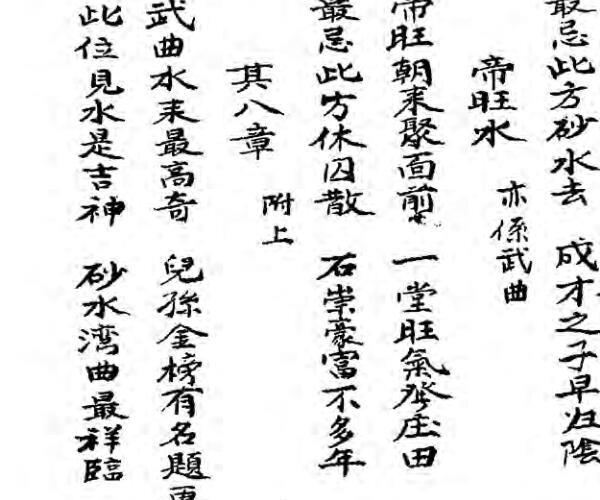 最忌此方砂水去 成才之子早归陰
帝旺水 亦係武曲
帝旺朝来聚面前 一堂旺氣發庄田
最忌此方休囚散 石崇豪富不多年
其八章 附上
武曲水来最高奇 兒孫金榜有名題
此位見水是吉神 砂水湾曲最祥臨